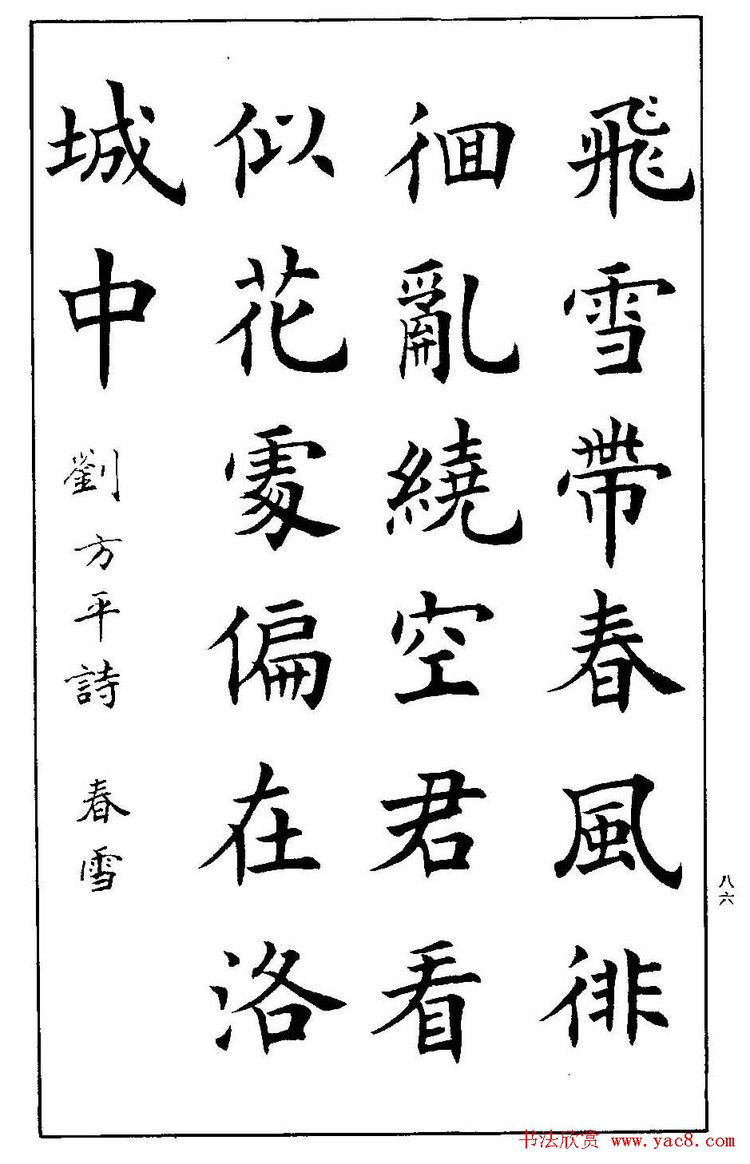 飛雪帶春風徘
徊亂繞空君看
似花處偏在洛
城中
劉方平詩 春雪
八六
书法欣赏 www.yac8.com